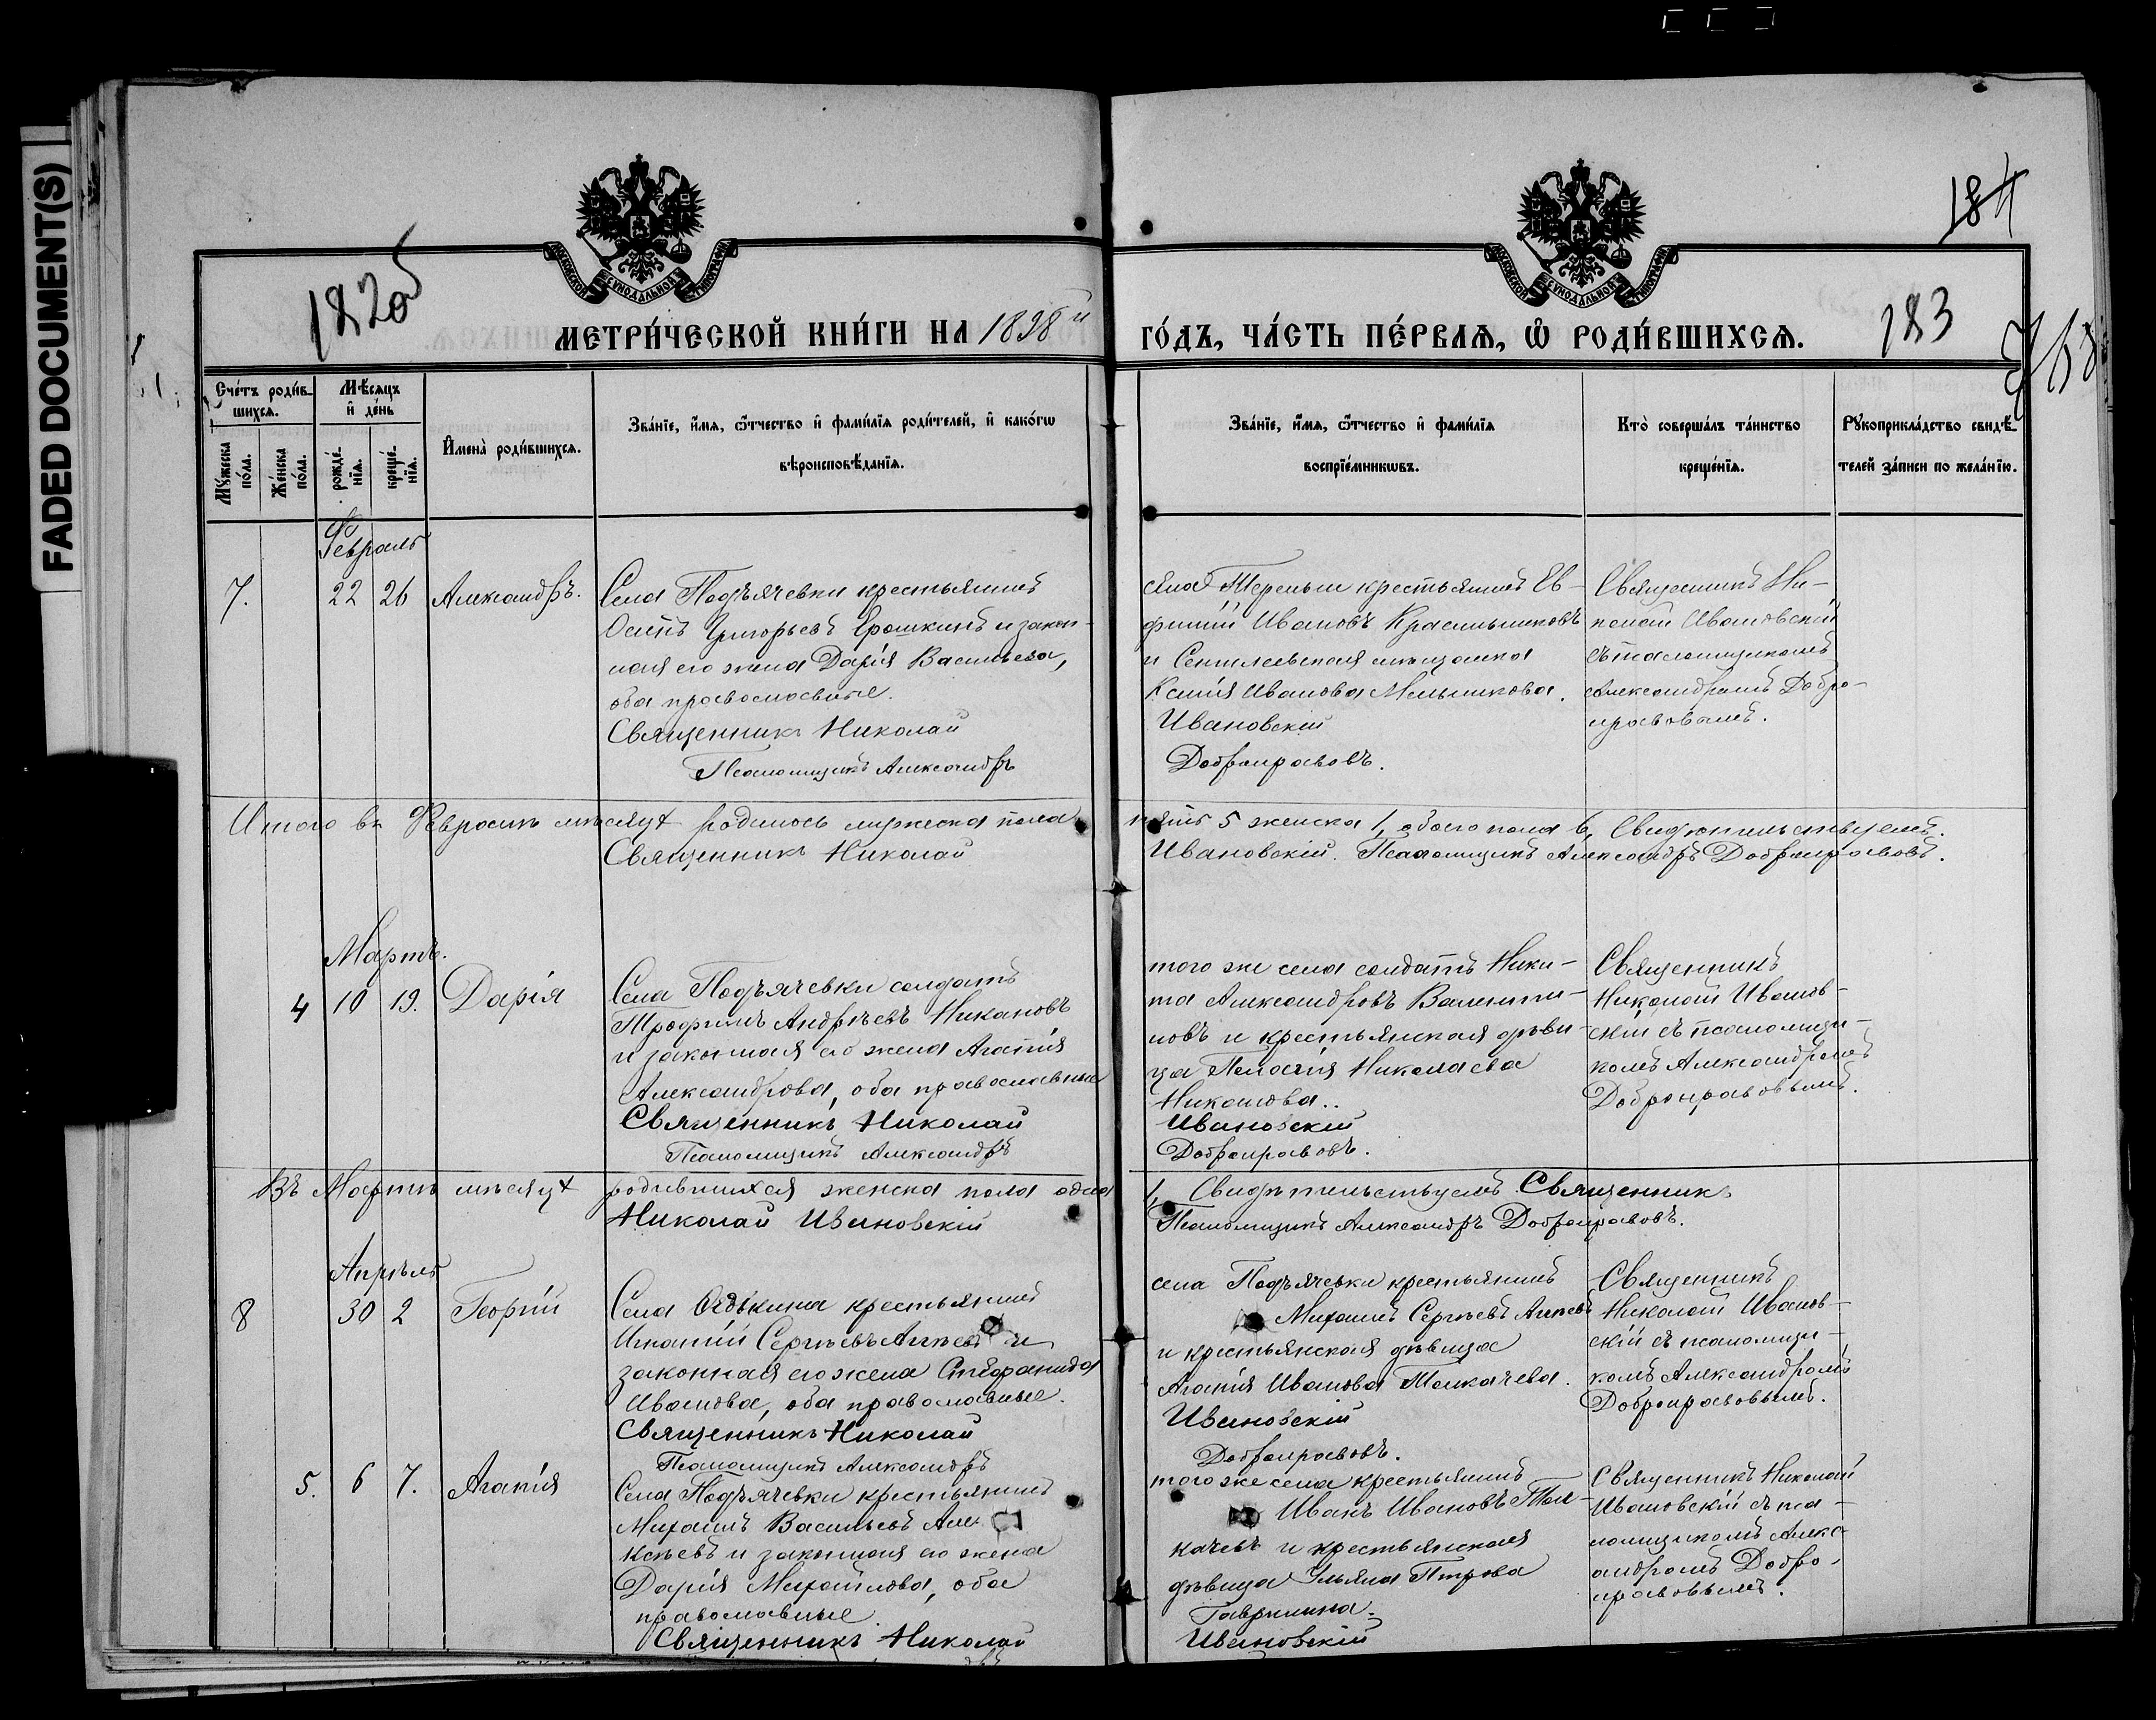 FADED DOCUMENT(S)
182об
184
183
МЕТРИ́ЧЕСКОЙ КНИ́ГИ НА 1898й ГО́ДЪ, ЧА́СТЬ ПЕ́РВАЯ, Ѡ҆ РОДИ́ВШИХСЯ.
Сче́тъ роди́в-
шихся.
Мѣ́сяцъ
и҆ де́нь
Мꙋ́жеска
по́ла.
Же́нска
по́ла.
рожде́-
нїя.
креще́-
нїя.
И҆мена̀ роди́вшихся.
Зва́нїе, и҆́мя, ѻ҆́тчество и҆ фами́лїя роди́телей, и҆ како́гѡ
вѣроисповѣ́данїя.
Зва́нїе, и҆́мя, ѻ҆́тчество и҆ фами́лїя
воспрїе́мникѡвъ.
Кто̀ соверша́лъ та́инство
креще́нїя.
Рꙋкоприкла́дство свидѣ́-
телей за́писи по жела́нїю.
Февраль
7. 22 26 Александръ.
Села Подъячевки крестьянинъ
Осипъ Григорьевъ Ерошкинъ и закон-
ная его жена Дарія Васильева,
оба православные.
Священникъ Николай
Псаломщикъ Александръ
села Тереньги крестьянинъ Ев-
фимій Ивановъ Красильниковъ
и Сенгилеевская мѣщанка
Ксенія Иванова Мельникова.
Ивановскій
Добронравовъ.
Священникъ Ни-
колай Ивановскій
съ псаломщикомъ
Александромъ Добро-
нравовымъ.
Итого въ Февралѣ мѣсяцѣ родилось мужеска пола пять 5 женска 1, обоего пола 6, Свидѣтельствуемъ.
Священникъ Николай Ивановскій. Псаломщикъ Александръ Добронравовъ.
Мартъ.
4 10 19. Дарія
Села Подъячевки солдатъ
Трофимъ Андрѣевъ Никановъ
и законная его жена Агапія
Александрова, оба православные
Священникъ Николай
Псаломщикъ Александръ
того же села солдатъ Ники-
та Александровъ Валенти-
новъ и крестьянская дѣви-
ца Пелагія Николаева
Никанова..
Ивановскій
Добронравовъ.
Священникъ
Николай Иванов-
скій съ псаломщи-
комъ Александромъ
Добронравовымъ.
Въ Мартѣ мѣсяцѣ родившихся женска пола одна 1, Свидѣтельствуемъ Священникъ
Николай Ивановскій Псаломщикъ Александръ Добронравовъ.
Апрѣль
8 30 2 Георгій
Села Сѣдькина крестьянинъ
Игнатій Сергѣевъ Агѣевъ и
законная его жена Стефанида
Иванова, оба православные.
Священникъ Николай
Псаломщикъ Александръ
села Подъячевки крестьянинъ
Михаилъ Сергѣевъ Агѣевъ
и крестьянская дѣвица
Агапія Иванова Толкачева.
Ивановскій
Добронравовъ.
Священникъ
Николай Иванов-
скій съ псаломщи-
комъ Александромъ
Добронравовымъ.
5. 6 7. Агапія
Села Подъячевки крестьянинъ
Михаилъ Васильевъ Але-
ксѣевъ и законная его жена
Дарія Михайлова, оба
православные
Священникъ Николай
того же села крестьянинъ
Иванъ Ивановъ Тол-
качевъ и крестьянская
дѣвица Ульяна Петрова
Гаврилина.
Ивановскій
Священникъ Николай
Ивановскій съ пса-
ломщикомъ Алекс
андромъ Добро-
нравовымъ.